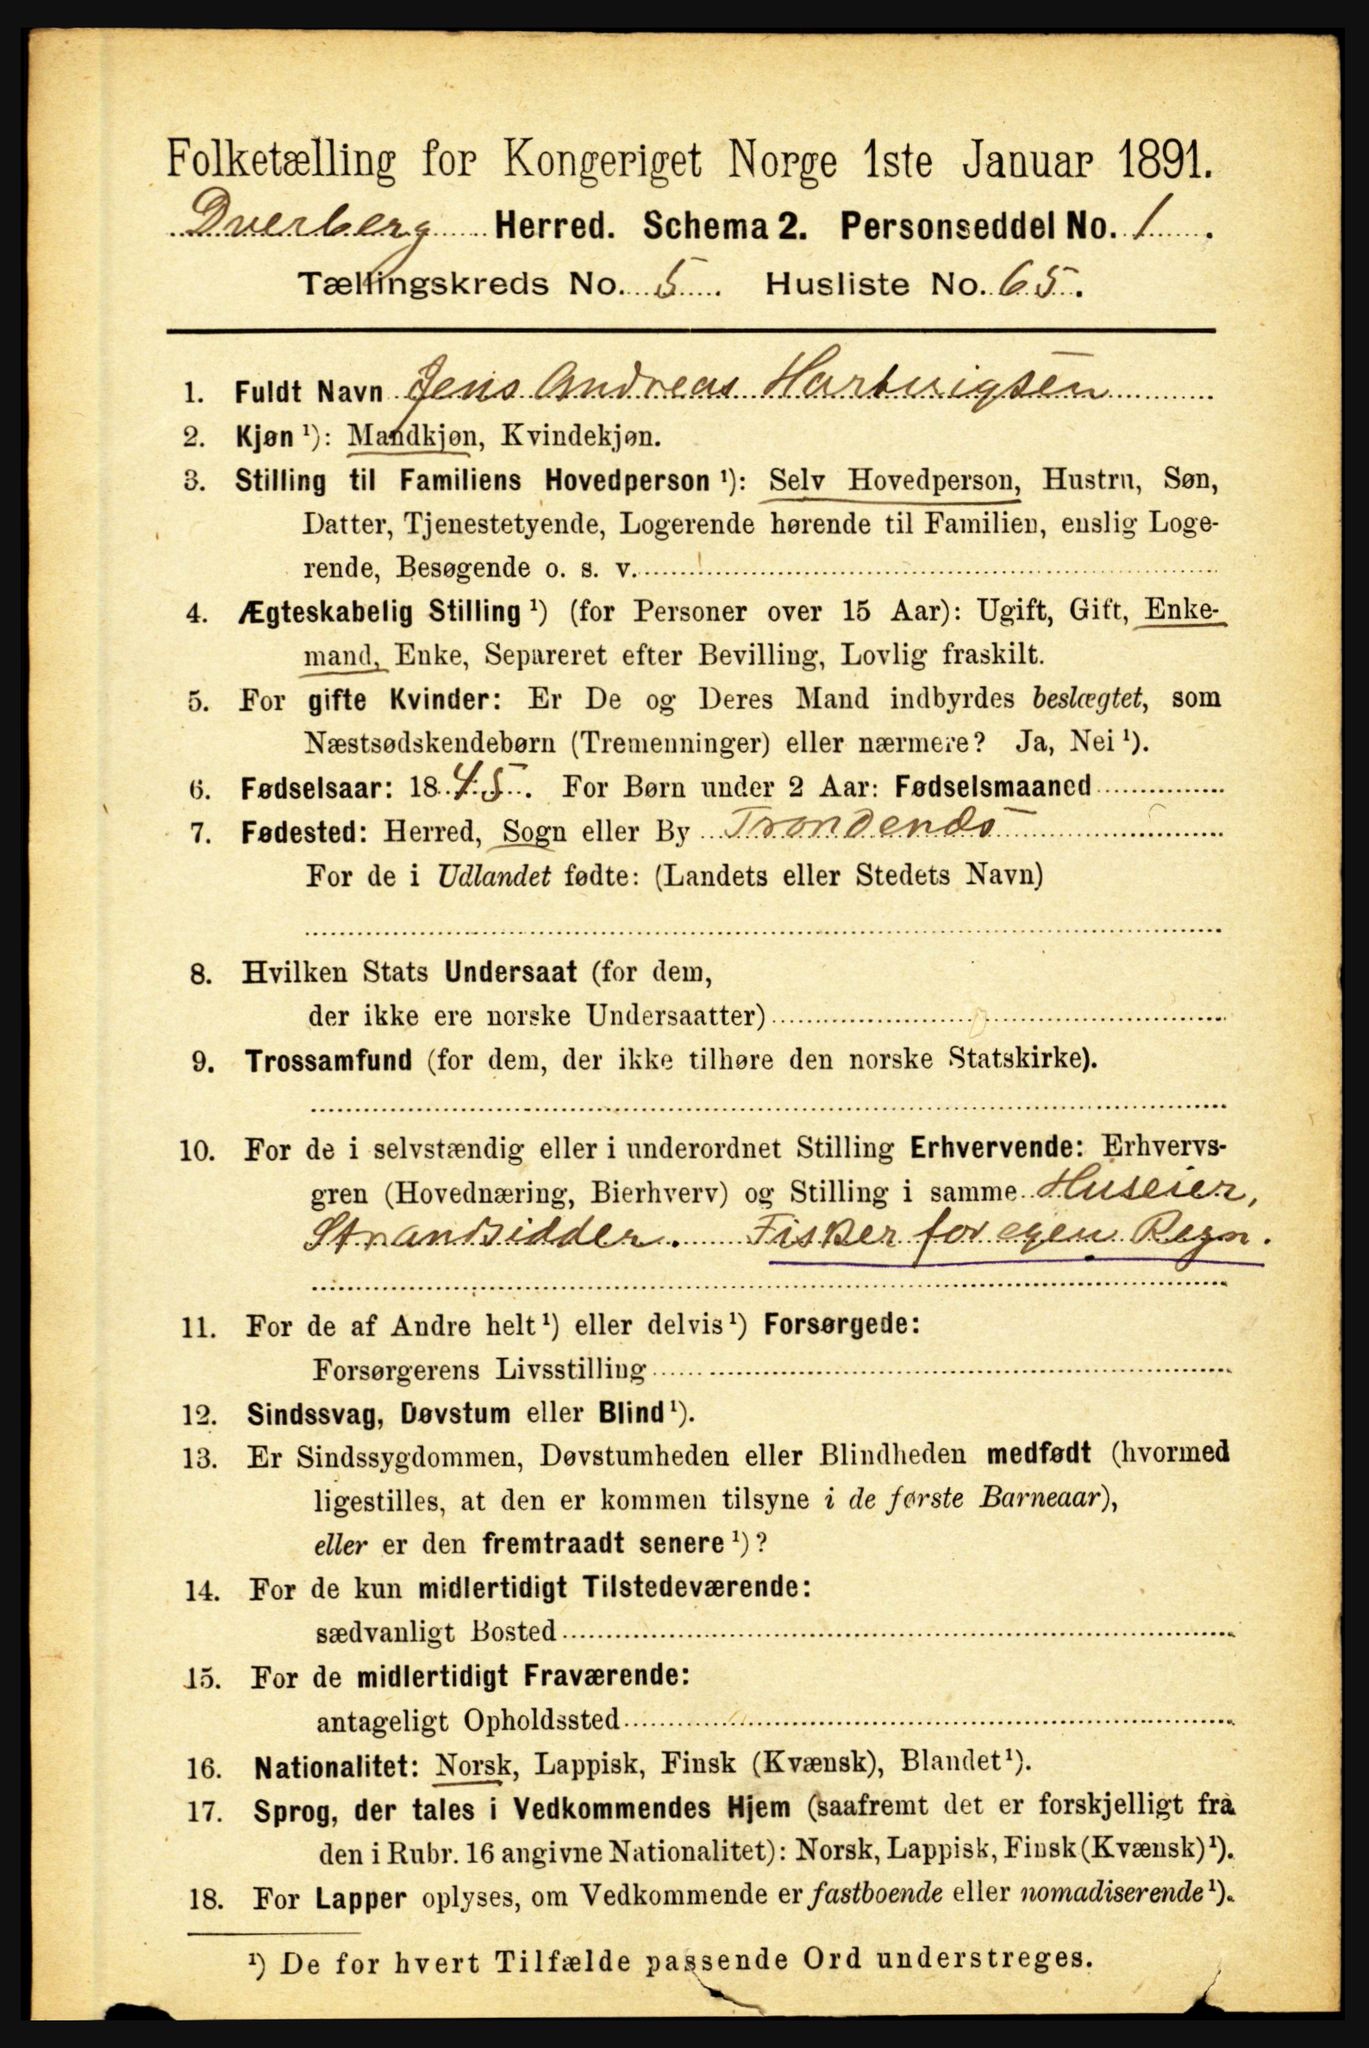 Folketælling for Kongeriget Norge 1ste Januar 1891.
Dverberg Herred. Schema 2. Personseddel No. 1.
Tællingskreds No. 5. Husliste No. 65.
1. Fuldt Navn Jens Andreas Hartvigsen
2. Kjøn ¹): Mandkjøn, Kvindekjøn.
3. Stilling til Familiens Hovedperson ¹): Selv Hovedperson, Hustru, Søn,
Datter, Tjenestetyende, Logerende hørende til Familien, enslig Loge-
rende, Besøgende o. s. v.
4. Ægteskabelig Stilling ¹) (for Personer over 15 Aar): Ugift, Gift, Enke-
mand, Enke, Separeret efter Bevilling, Lovlig fraskilt.
5. For gifte Kvinder: Er De og Deres Mand indbyrdes beslægtet, som
Næstsødskendebørn (Tremenninger) eller nærmere? Ja, Nei ¹).
6. Fødselsaar: 1845. For Børn under 2 Aar: Fødselsmaaned
7. Fødested: Herred, Sogn eller By Trondends
For de i Udlandet fødte: (Landets eller Stedets Navn)
8. Hvilken Stats Undersaat (for dem,
der ikke ere norske Undersaatter)
9. Trossamfund (for dem, der ikke tilhøre den norske Statskirke).
10. For de i selvstændig eller i underordnet Stilling Erhvervende: Erhvervs-
gren (Hovednæring, Bierhverv) og Stilling i samme Huseier,
Strandsidder. Fisker for egen Regn.
11. For de af Andre helt ¹) eller delvis ¹) Forsørgede:
Forsørgerens Livsstilling
12. Sindssvag, Døvstum eller Blind ¹).
13. Er Sindssygdommen, Døvstumheden eller Blindheden medfødt (hvormed
ligestilles, at den er kommen tilsyne i de første Barneaar),
eller er den fremtraadt senere ¹)?
14. For de kun midlertidigt Tilstedeværende:
sædvanligt Bosted
15. For de midlertidigt Fraværende:
antageligt Opholdssted
16. Nationalitet: Norsk, Lappisk, Finsk (Kvænsk), Blandet ¹).
17. Sprog, der tales i Vedkommendes Hjem (saafremt det er forskjelligt fra
den i Rubr. 16 angivne Nationalitet): Norsk, Lappisk, Finsk (Kvænsk) ¹).
18. For Lapper oplyses, om Vedkommende er fastboende eller nomadiserende ¹).
¹) De for hvert Tilfælde passende Ord understreges.